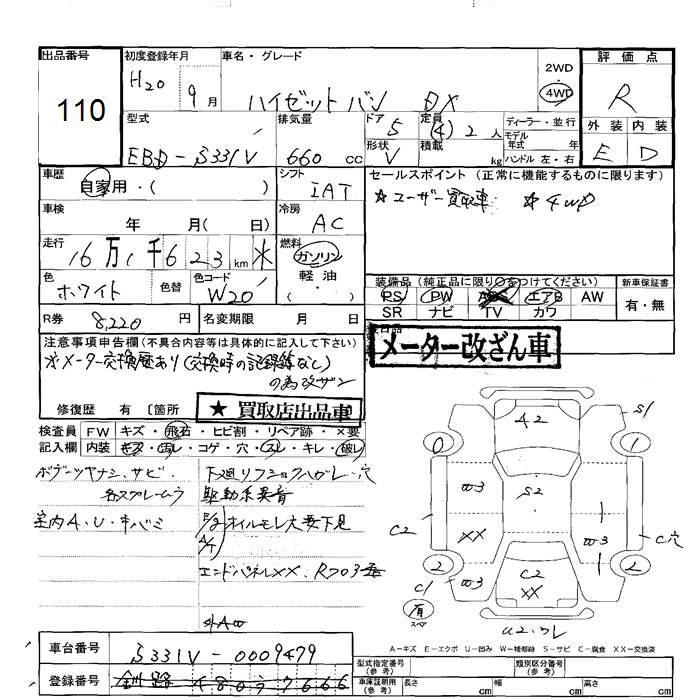 出品番号
110
初度登録年月
H20 9月
車名・グレード
ハイゼットバン DX
2WD
4WD
評価点
R
外装 内装
E D
型式
EBD-S331V
排気量
660 cc
ドア 5
形状 V
定員 (4) 2 人
積載 kg
ディーラー・並行
モデル年式 年
ハンドル 左・右
車歴
自家用・( )
シフト
IAT
セールスポイント (正常に機能するものに限ります)
☆ユーザー買取車 ☆4WD
車検
年 月( 日)
冷房
AC
走行
16万1千623 km
燃料
ガソリン
軽油
・( )
色
ホワイト
色替
色コード
W20
装備品(純正品に限り○をつけてください)
PS PW ABS エアB AW
SR ナビ TV カワ
新車保証書
有・無
R券 8,220 円
名変期限 月 日
メーター改ざん車
注意事項申告欄(不具合内容等は具体的に記入して下さい)
※メーター交換歴あり(交換時の記録等なし)
の為改ザン
修復歴 有 〔箇所
★買取店出品車
検査員記入欄
FW キズ・飛石・ヒビ割・リペア跡・×要
内装 キズ・汚レ・コゲ・穴・スレ・キレ・破レ
ボデーツヤナシ、サビ、
室内A、U、キバミ
下廻リフショクハガレ・穴
駆動系異音
オイルモレ大要下見
A/T
エンドパネルXX、
外AW
A2
S1
0
1
W3
S2
XX
W3
C2
C穴
2
2
C1
W3
C2
XX
有
スペア
U2、ワレ
A-キズ E-エクボ U-凹み W-補修跡 S-サビ C-腐食 XX-交換済
車台番号
S331V-0009479
登録番号
釧路480う7666
型式指定番号(参考)
類別区分番号(参考)
車庫証明用(参考)
長さ cm
幅 cm
高さ cm